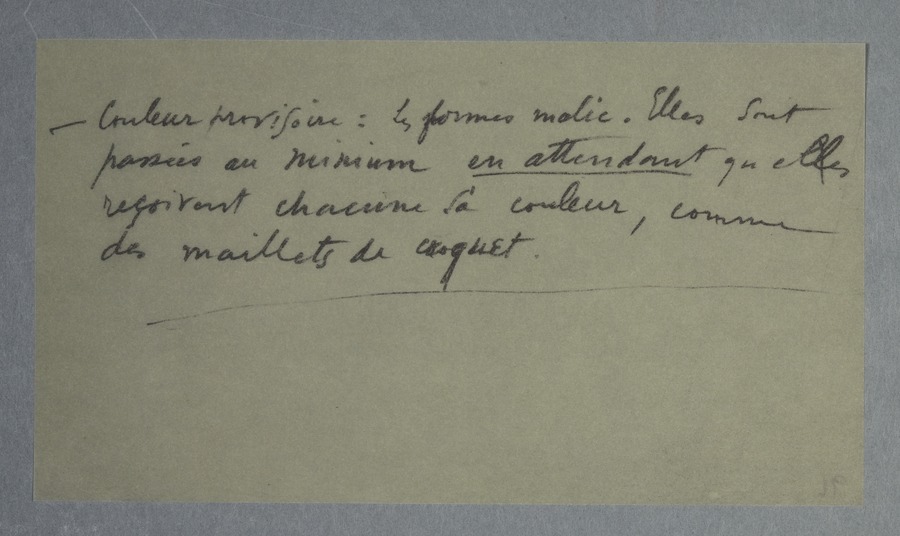 — Couleur provisoire = Les formes malic. Elles sont
passées au minium en attendant qu'elles
reçoivent chacune sa couleur, comme
des maillets de croquet.